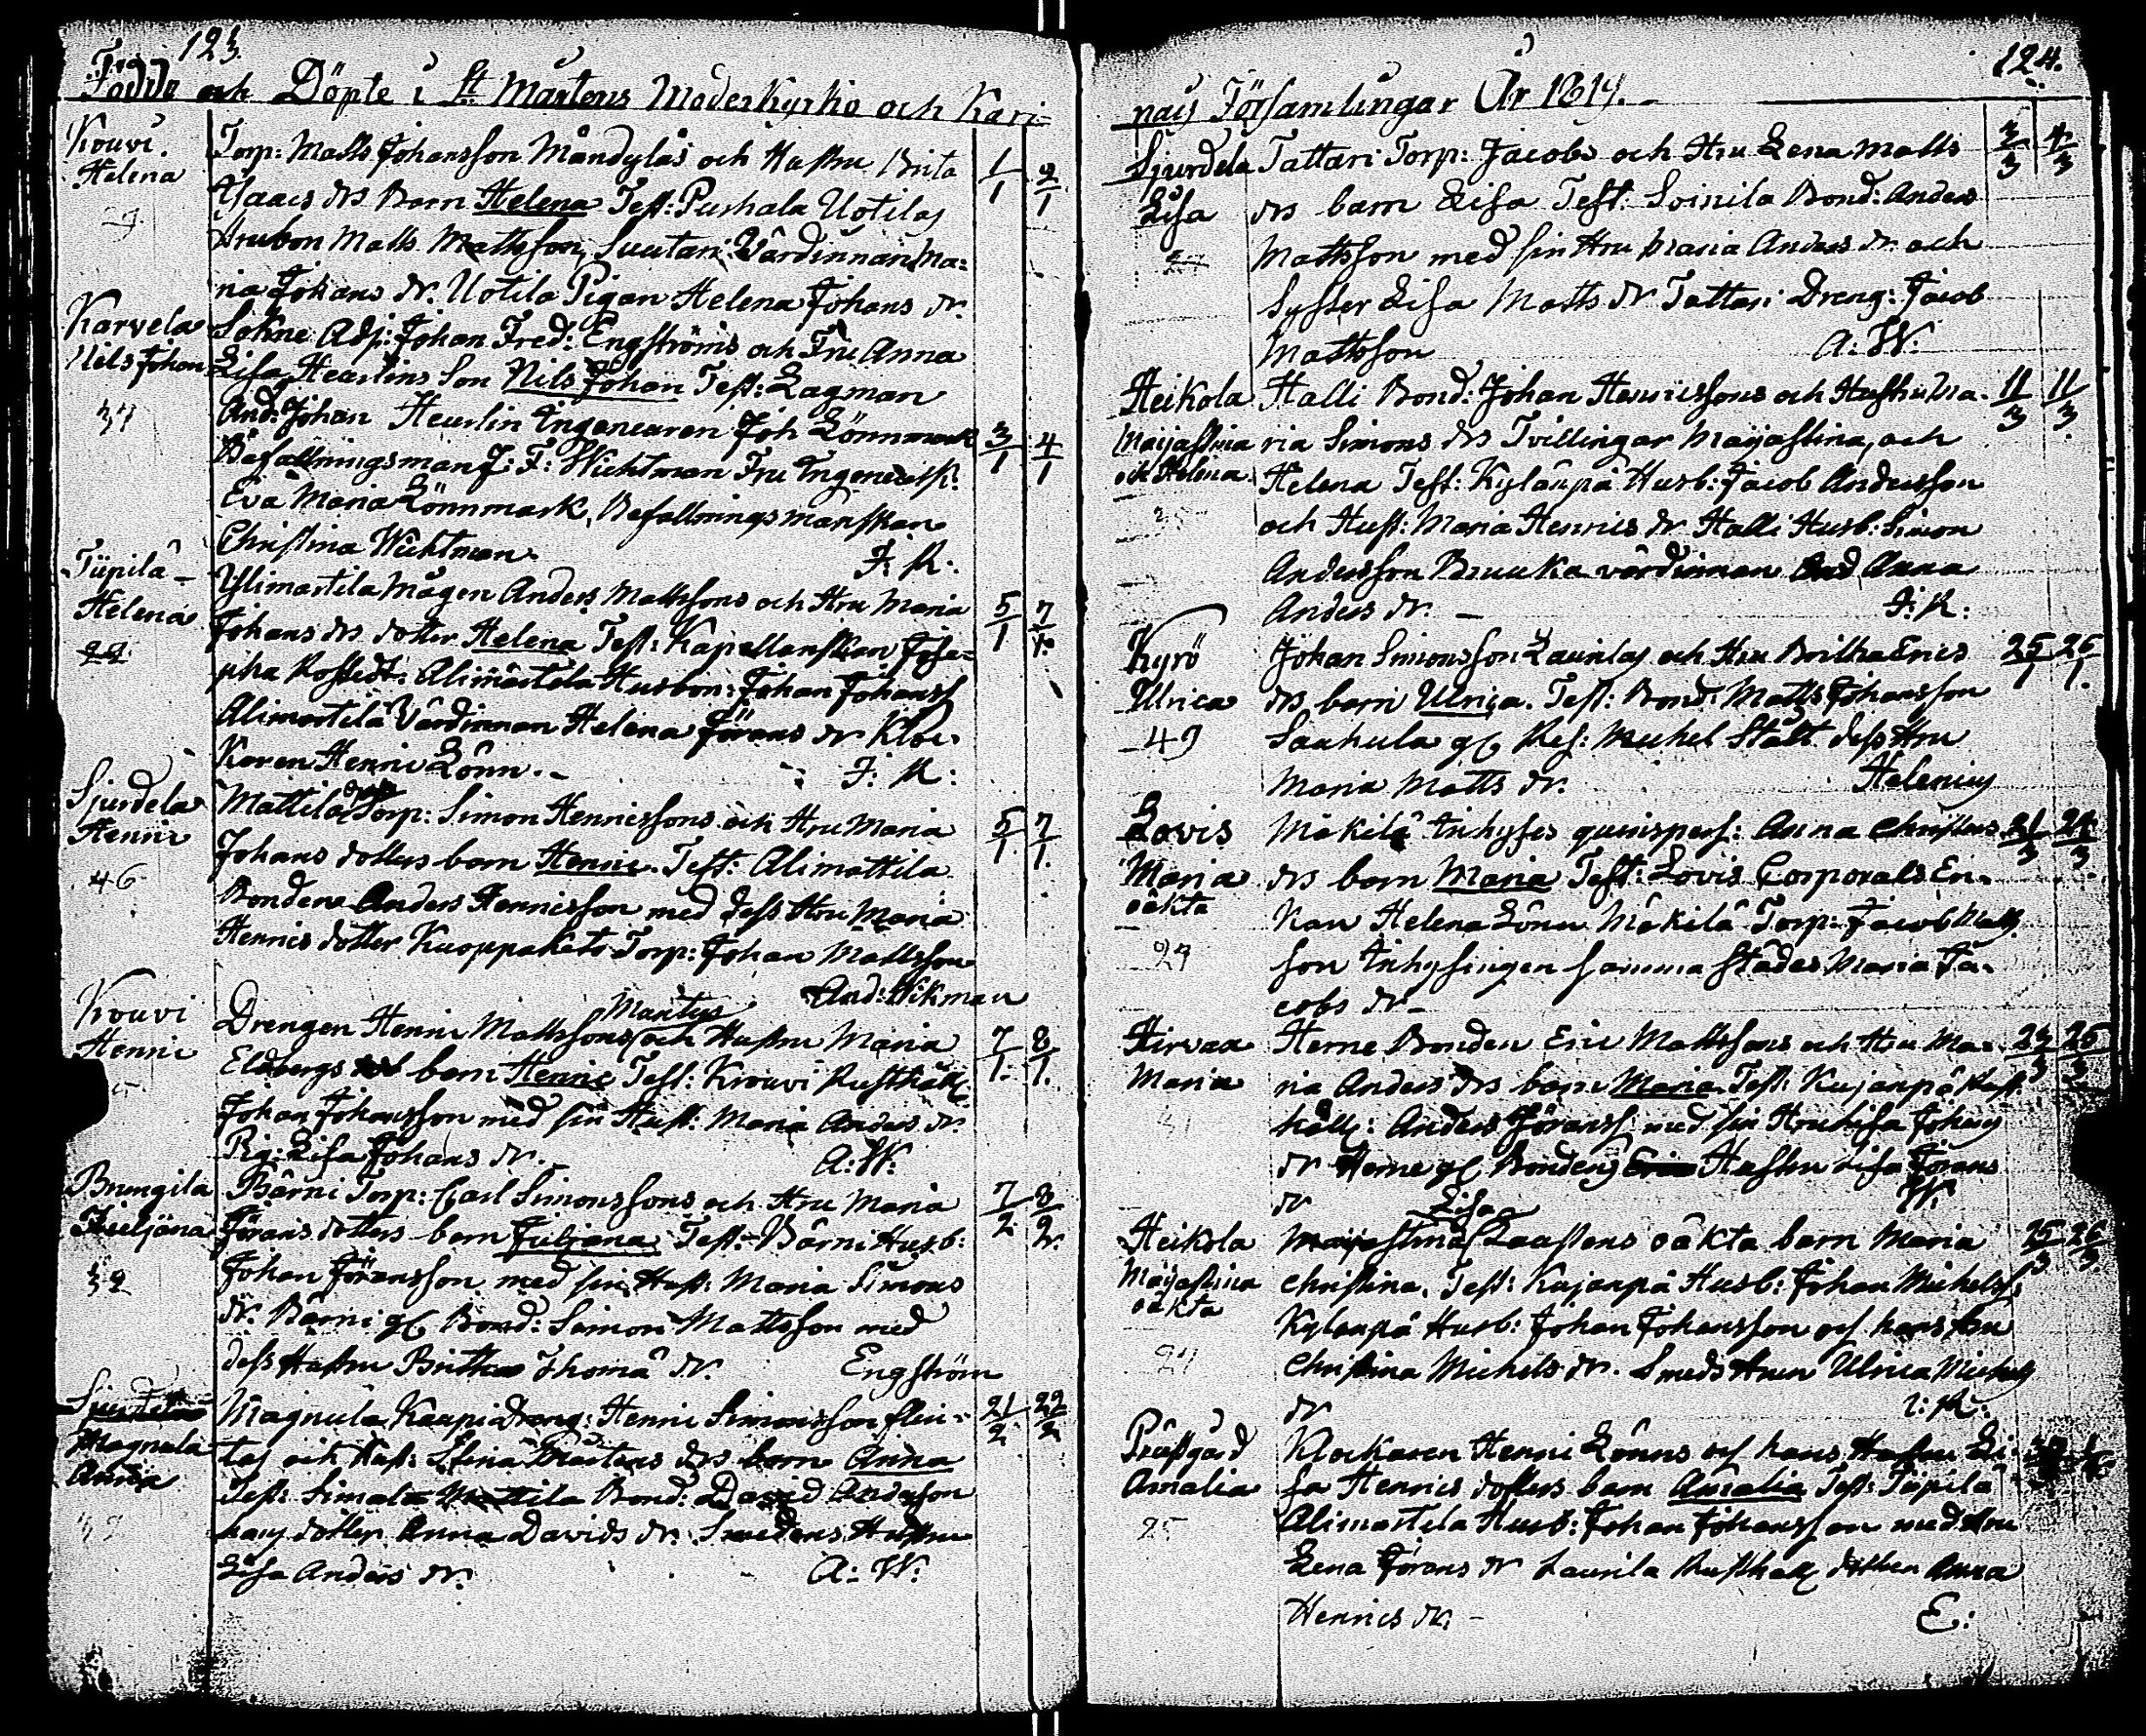 123.
Födde och Döpte i St Mårtens Moderkyrko och Kari-
Krouvi.
Helena
29
Torp: Matts Johansson Mändyläs och Hustru Brita
Isaacs drs Barn Helena Test: Purhala Uotilas
Husbon Matts Mattsson, Suutari Värdinnan Ma-
ria Johans dr. Uotila Pigan Helena Johans dr.
1/1 2/1
Karvela
Nils Johan
37
Sohne Adj: Johan Fred: Engströms och Fru Anna
Lisa Heurlins Son Nils Johan Test: Lagman
And: Johan Heurlin Ingenieuren Joh Lönnmark
Befallningsman J: F: Wichtman Fru Ingenieursk:
Eva Maria Lönnmark, Befallningsmanskan
Christina Wichtman. F: R:
3/1 4/1
Tiipilä
Helena
22
Ylimartila Mågen Anders Mattssons och Hru Maria
Johans drs dotter Helena Test: Kapellanskan Jose-
pha Rostedt: Alimartela Husbon: Johan Johanss
Alimartila Värdinnan Helena Jörans dr Kloc-
karen Henric Lönn. F: R:
5/1 7/1
Sjurdela
Henric
46
Mattila Torp: Simon Henricssons och Hru Maria
Johans dotters barn Henric. Test: Alimattila
Bonden Anders Henricsson med dess Hru Maria
Henrics dotter Kuoppakato Torp: Johan Mattsson
And: Wikman
5/1 7/1
Krouvi
Henric
Drengen Henric Mattssons och Hustru Maria
Eldbergs barn Henric Test: Krouvi Rusthåll:
Johan Johansson med sin Hust: Maria Anders dr.
Pig: Lisa Johans dr. A: W:
7/1 8/1
Brungila
Juljana
32
Bärni Torp: Carl Simonssons och Hru Maria
Jörans dotters barn Juljana. Test: Bärni Husb:
Johan Jöransson med sin Hust: Maria Simons
dr. Bärni gl Bond: Simon Mattsson med
dess Hustru Britha Thoma dr. Engström
7/2 8/2
Magnula
Anna
Magnula Kaupi Dreng: Henric Simonsson
och Hust: Stina Mårtens drs barn Anna
Test: Simala Bond: David Andersson
hans dotter Anna Davids dr. Smedens Hustru
Lisa Anders dr. A: W:
21/2 22/2
124.
nais Församlingar År 1819.
Sjurdela
Lisa
Tattari Torp: Jacobs och Hru Lena Matts
drs barn Lisa Test: Soinila Bond: Anders
Mattsson med sin Hru Maria Anders dr. och
Syster Lisa Matts dr Tattari Dreng: Jacob
Mattsson A: W:
3/3 4/3
Heikola
Maijastina
och Helena
Halli Bond: Johan Henricssons och Hustru Ma-
ria Simons drs Tvillingar Maijastina, och
Helena Test: Kylänpä Husb: Jacob Andersson
och Hust: Maria Henrics dr Halli Husb: Simon
Andersson Bruuka värdinnan Anna
Anders dr. F: R:
11/3 11/3
Kyrö
Ulrica
49
Johan Simonsson Launlas och Hru Britha Erics
drs barn Ulrica. Test: Bond: Matts Johansson
Sauhula gl Res: Michel Stålt dess Hru
Maria Matts dr. Helenius
25/1 26/1
Lovis
Maria
oäkta
29
Mäkilä Inhyses quinspers: Anna Christers
drs barn Maria Test: Lovis Corporals En-
kan Helena Lönn Mäkilä Torp: Jacob Matts
son Inhysingen samma städes Maria Ja-
cobs dr
21/3 24/3
Hirvaa
Maria
31
Herne Bonden Eric Mattssons och Hru Ma-
ria Anders drs barn Maria. Test: Kujanpä Rust
håll: Anders Jöranss: med sin Hru Lisa Johans
dr Herne gl Bondens Hustru Lisa Jörans
dr W:
23/3 25/3
Heikola
Maijastina
oäkta
27
Lisa Laastens oäkta barn Maria
Christina. Test: Kujanpä Husb: Johan Michelss:
Kylänpä Husb: Johan Johansson och hans Hru
Christina Michels dr. Smeds Hrun Ulrica Michels
dr
25/3 26/3
Prästgård
Amalia
25
Klockaren Henric Lönns och hans Hustru Li-
sa Henrics dotters barn Amalia Test: Tiipilä
Alimartela Husb: Johan Johansson med Hru
Lena Jörans dr Launila Rusthåll: dotter Anna
Henrics dr. E: